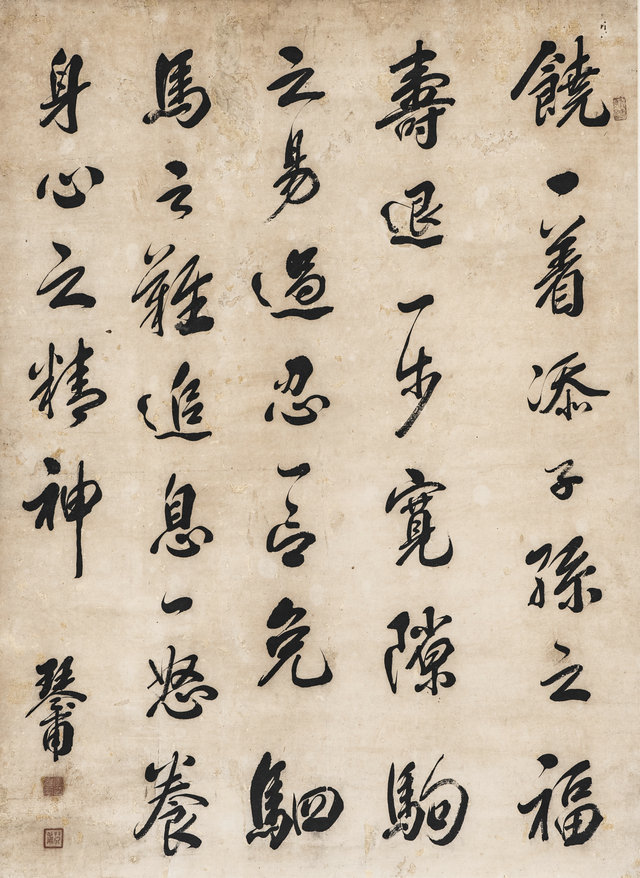 饒一着添子孫之福
壽退一步寬隙駒
之易過忍一言免駟
馬之難追息一怒養
身心之精神
琴甫